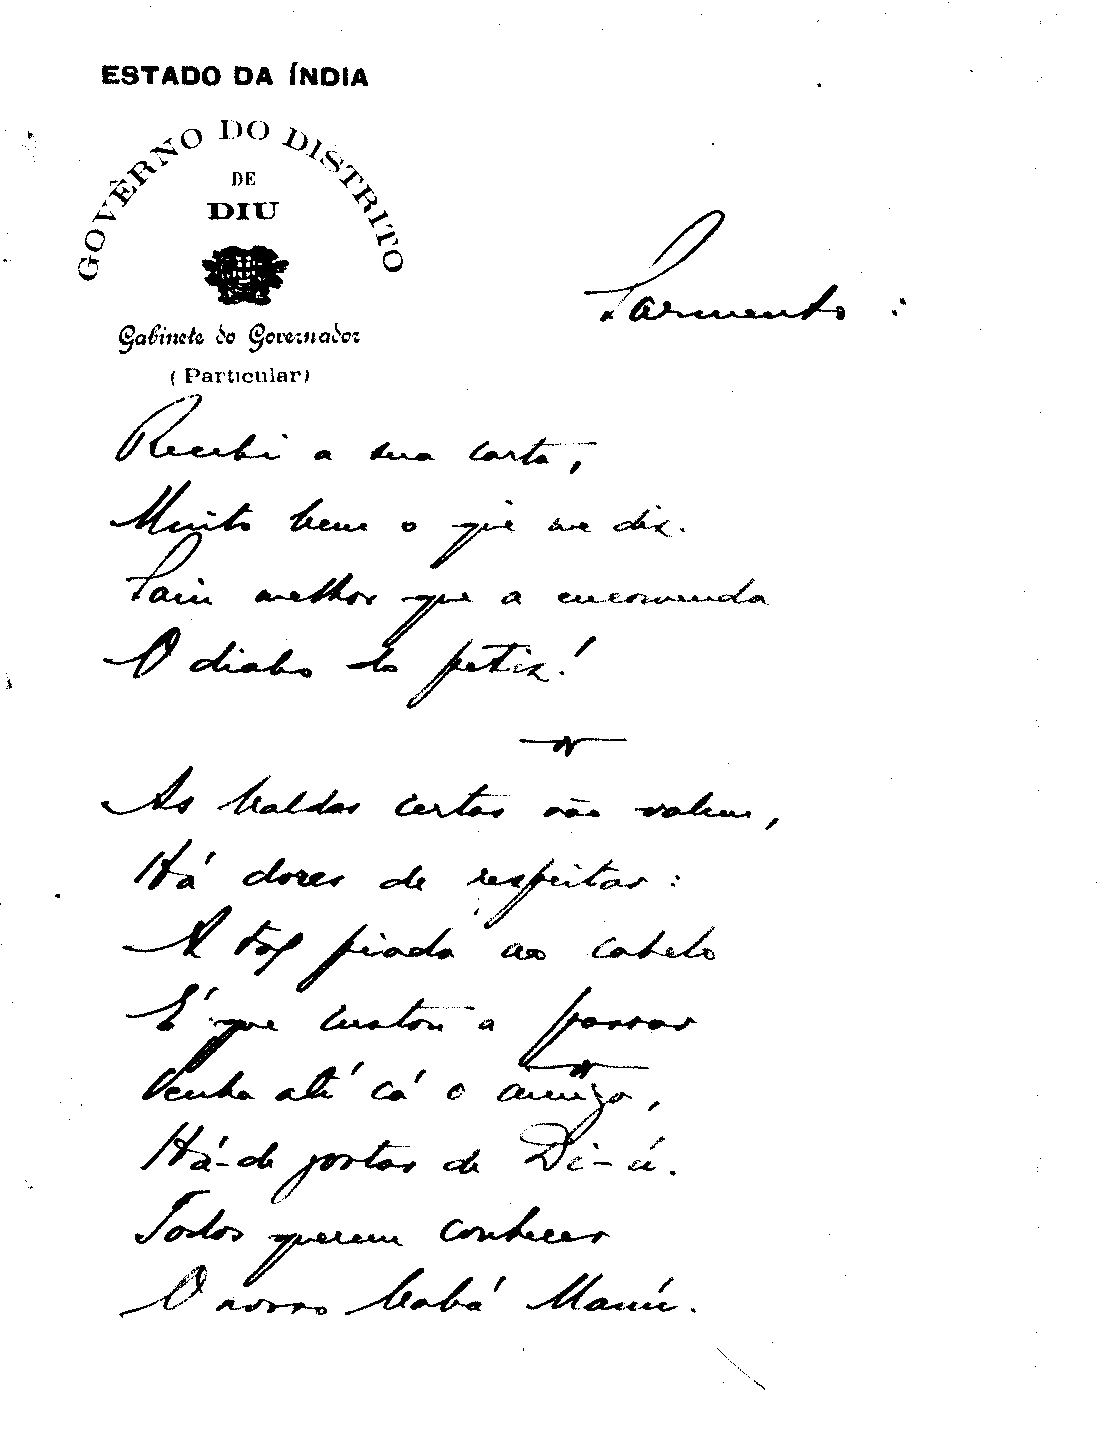 ESTADO DA ÍNDIA
GOVÊRNO DO DISTRITO
DE
DIU
Gabinete do Governador
(Particular)
Sarmento:
Recebi a sua carta,
Muito bem o que me diz.
Saíu melhor que a encomenda
O diabo do petiz!
As baldas certas não valem,
Há dores de respeitar:
A piada ao cabelo
É que custou a passar
Venha até cá o amigo,
Há-de gostar de Di-ú.
Todos querem conhecer
O nosso babá Manú.